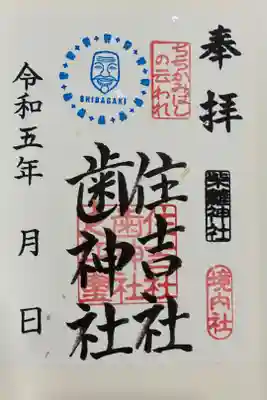 奉拝
柴籬神社
境内社
ちちかみはし
の云われ
SHIBAGAKI
住吉社
歯神社
令和五年 月 日